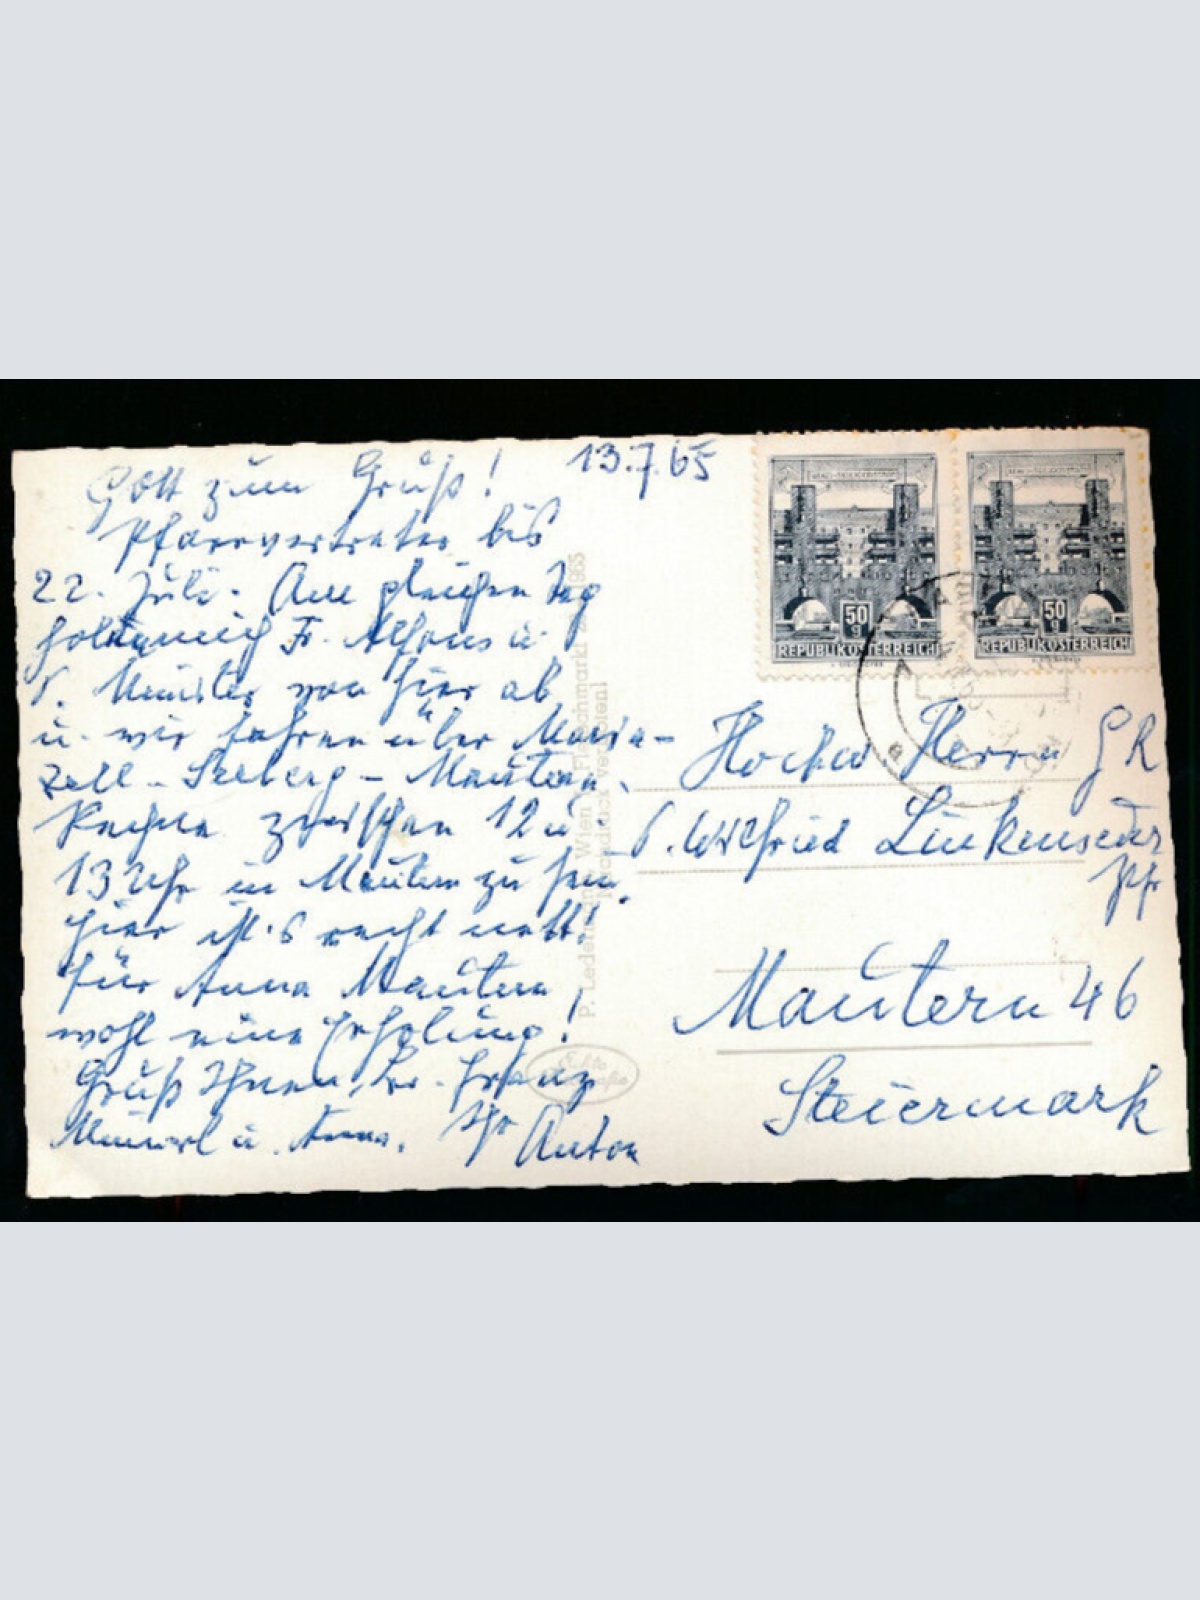 13.7.65
Gott zum Gruß!
Pfarrvertreter bis
22. Juli. Am gleichen Tag
holen mich Fr. Alfons u.
P. Minister von hier ab
u. wir fahren über Maria-
zell - Seeberg - Mautern.
Rechne zwischen 12 u.
13 Uhr in Mautern zu sein.
Hier ist's recht nett!
Für Anna Mautern
wohl eine Erholung!
Gruß Ihnen, Br. Franz
u. Anna. Ihr Anton
Hochw. Herrn GR
P. Wilfried Linkenseder
Pfr
Mautern 46
Steiermark
50 g
REPUBLIK ÖSTERREICH
50 g
REPUBLIK ÖSTERREICH
P. Ledermann, Wien Fleischmarkt 1965
Nachdruck verboten!